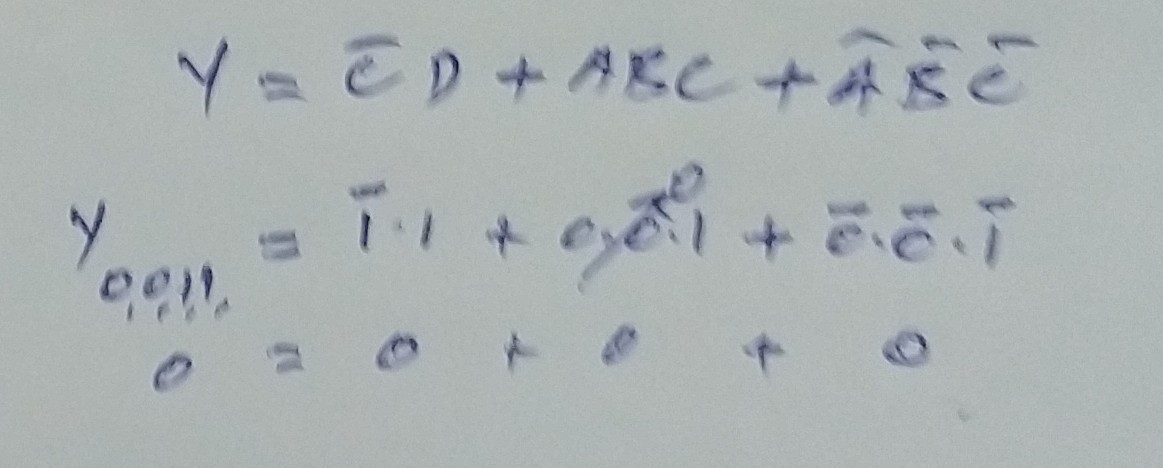 Y = C̅ D + ABC + A̅ B̅ C̅
Y₀₀₁₁ = 1̅.1 + 0.0.1 → 0 + 0̅.0̅.1̅
0 = 0 + 0 + 0